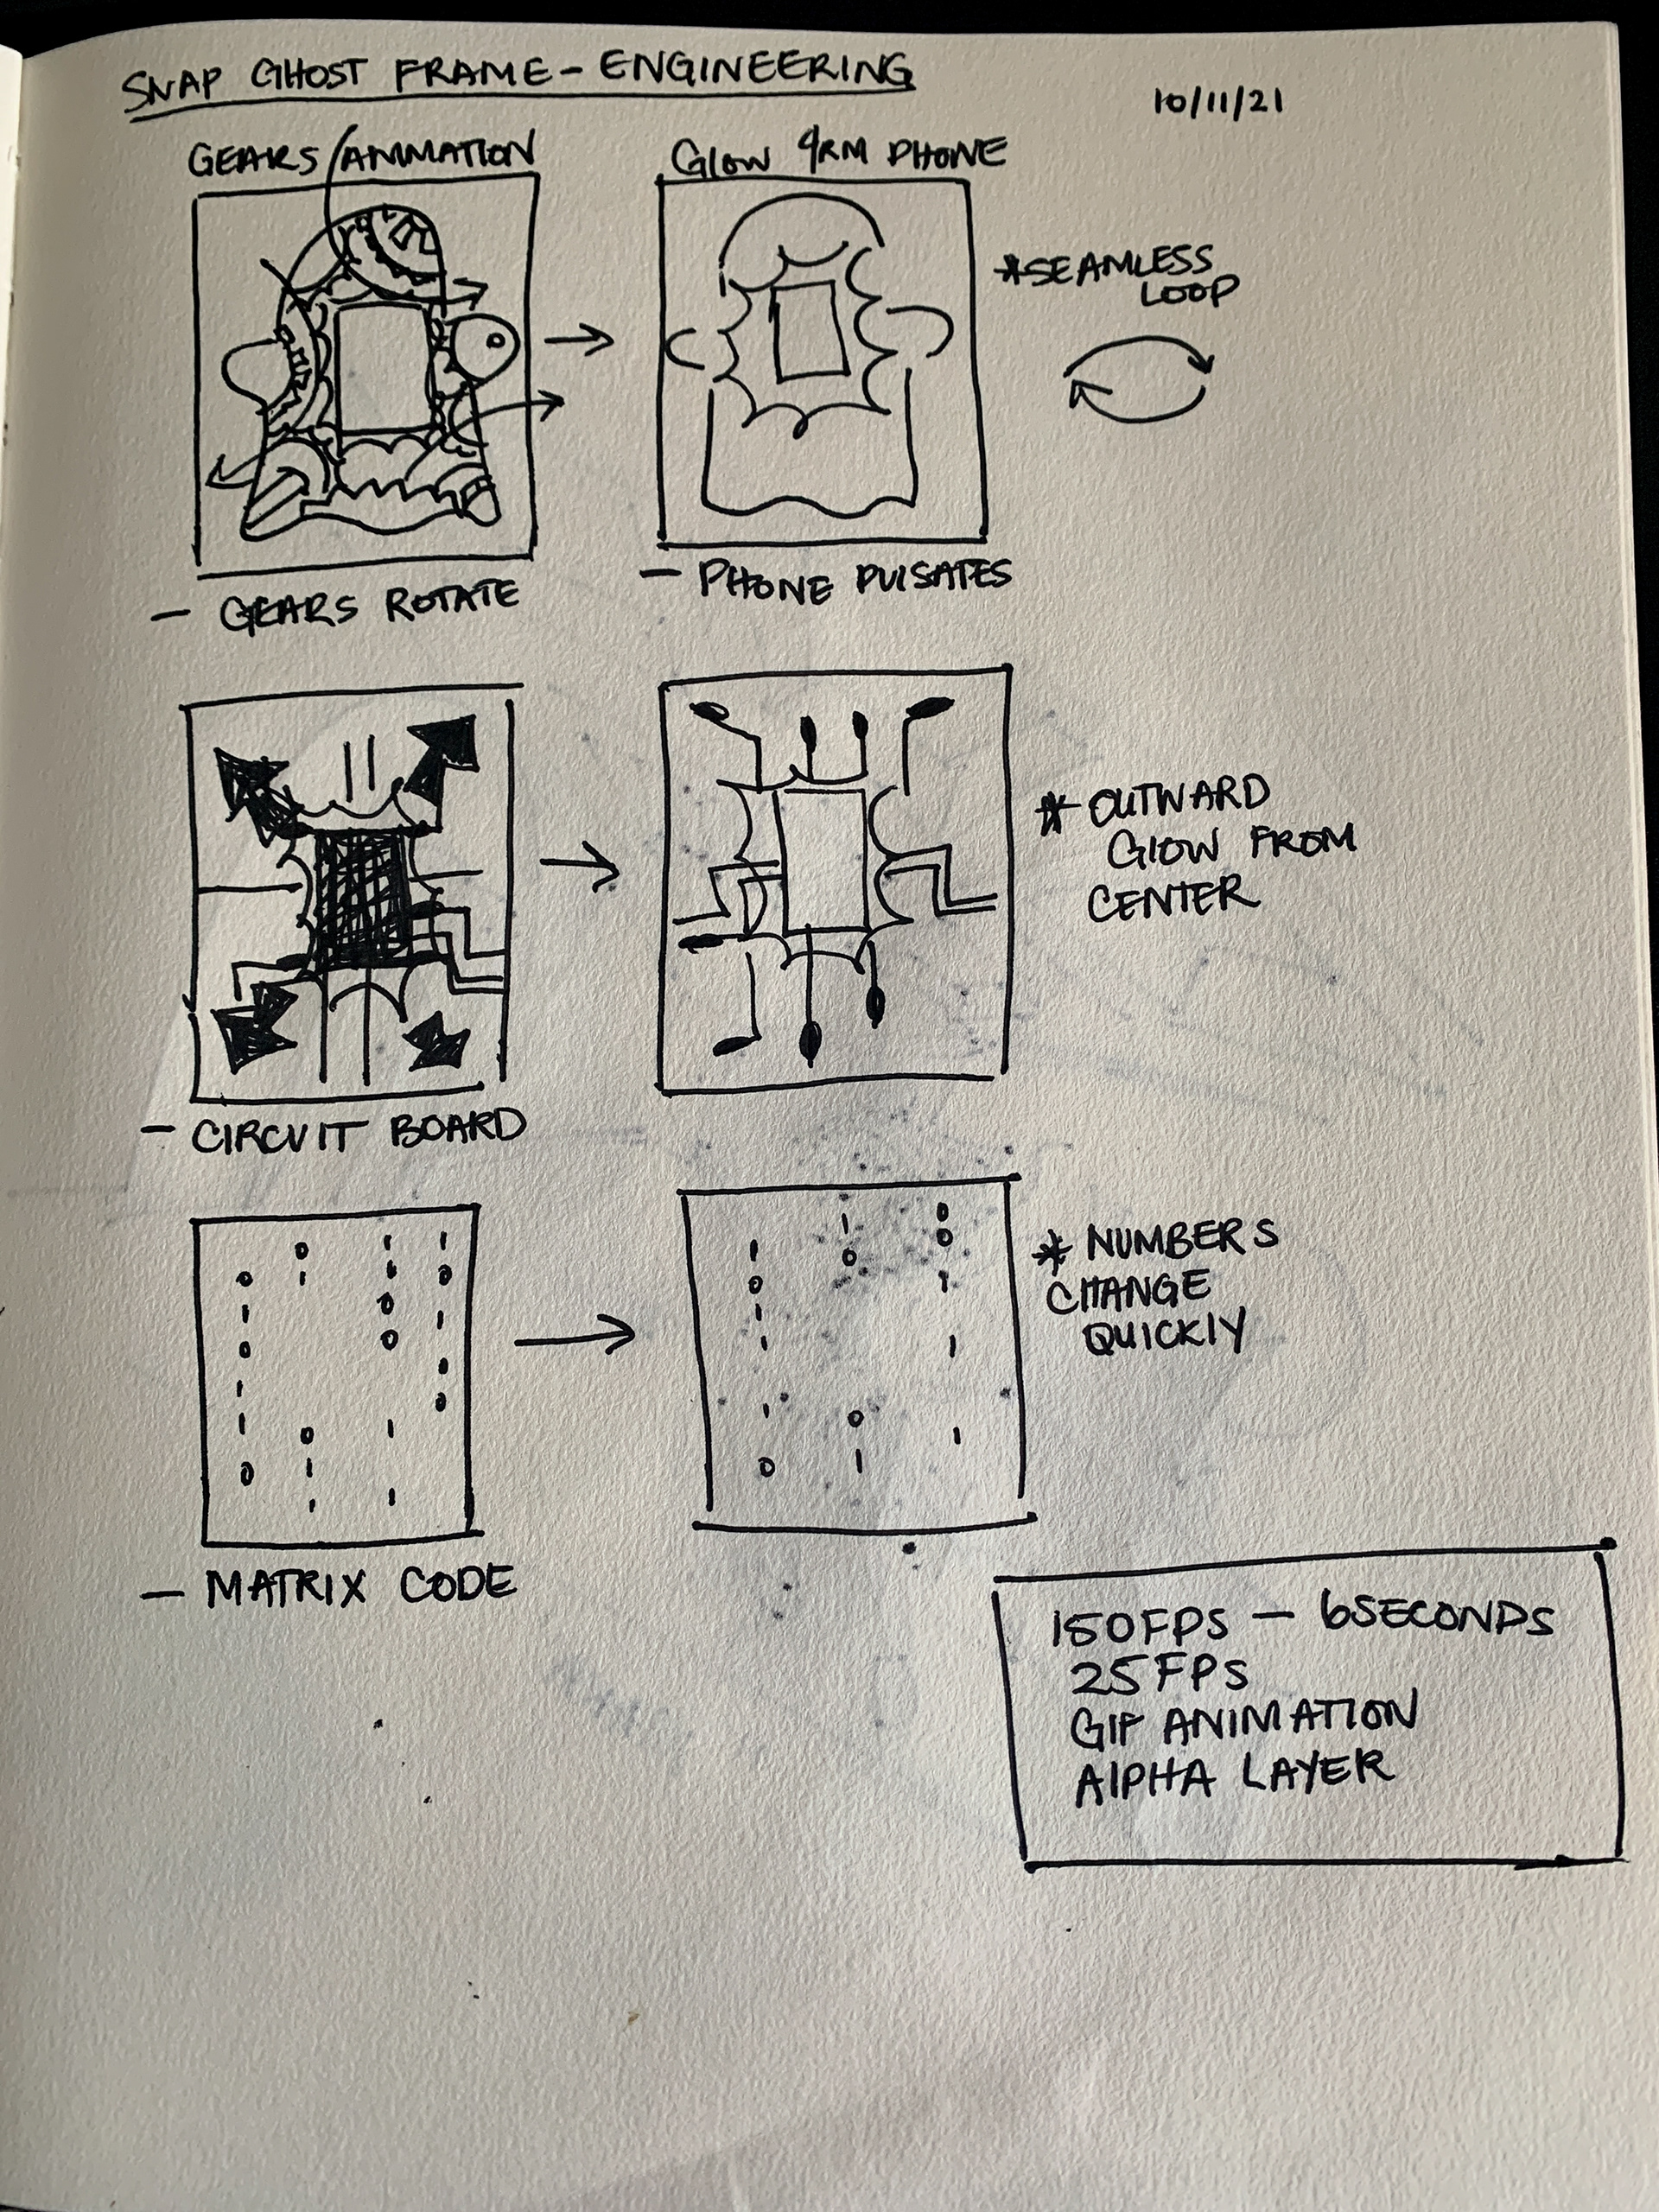 SNAP GHOST FRAME - ENGINEERING
10/11/21
GEARS/ANIMATION
GLOW FRM PHONE
* SEAMLESS
LOOP
- GEARS ROTATE
- PHONE PULSATES
* OUTWARD
GLOW FROM
CENTER
- CIRCUIT BOARD
* NUMBERS
CHANGE
QUICKLY
- MATRIX CODE
150FPS - 6SECONDS
25FPS
GIF ANIMATION
ALPHA LAYER